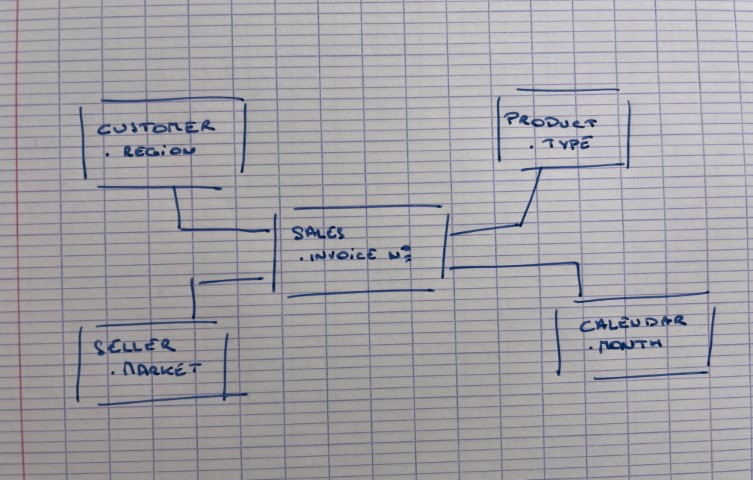 CUSTOMER
. REGION
PRODUCT
. TYPE
SALES
. INVOICE Nº
SELLER
. MARKET
CALENDAR
. MONTH